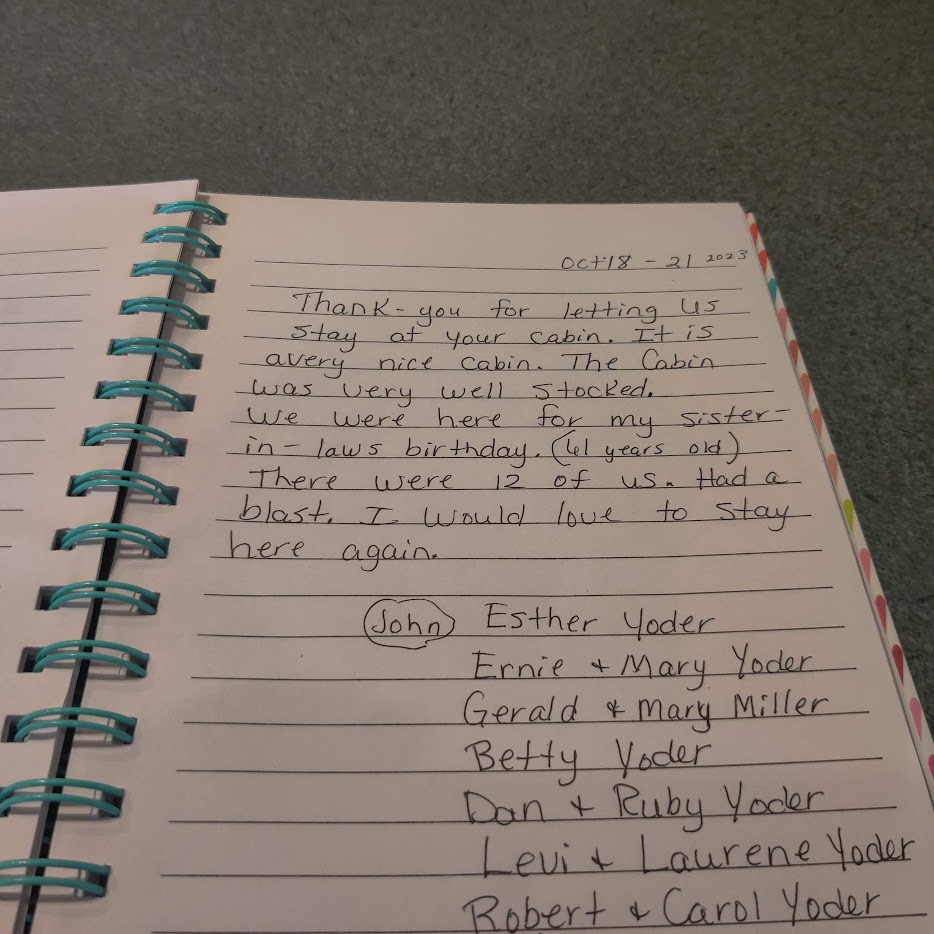 Oct 18 - 21 2023
Thank-you for letting us
stay at your cabin. It is
avery nice cabin. The Cabin
was very well stocked.
We were here for my sister-
in-laws birthday. (61 years old)
There were 12 of us. Had a
blast. I would love to stay
here again.
John Esther Yoder
Ernie + Mary Yoder
Gerald + Mary Miller
Betty Yoder
Dan + Ruby Yoder
Levi + Laurene Yoder
Robert + Carol Yoder